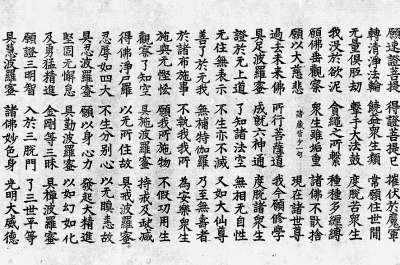 願速證菩提 得證菩提已 摧伏於魔軍
轉清淨法輪 饒益眾生類 常願住世間
無量俱胝劫 擊手大法鼓 度脫苦眾生
我没於欲泥 貪繩之所繫 種種多纏縛
願佛垂觀察 眾生雖垢重 諸佛不厭捨
願以大慈悲 諸藏皆少一句 現在諸世尊
過去未來佛 所行菩薩道 我今願修學
具足波羅蜜 成就六神通 度脫諸眾生
證於無上道 了知諸法空 無相無自性
無住無表示 不生亦不滅 又如大仙尊
善了於無我 無補特伽羅 乃至無壽者
於諸布施事 不執我我所 為安樂眾生
施與無慳悋 願我所施物 不假功用生
觀察了知空 具施波羅蜜 持戒及缺減
得佛淨尸羅 以無所住故 具戒波羅蜜
忍辱如四大 不生分別心 以無瞋恚故
具忍波羅蜜 願以身心力 發起大精進
堅固無懈怠 具勤波羅蜜 以如幻如化
及勇猛精進 金剛等三昧 具禪波羅蜜
願證三明智 入於三脫門 了三世平等
具慧波羅蜜 諸佛妙色身 光明大威德